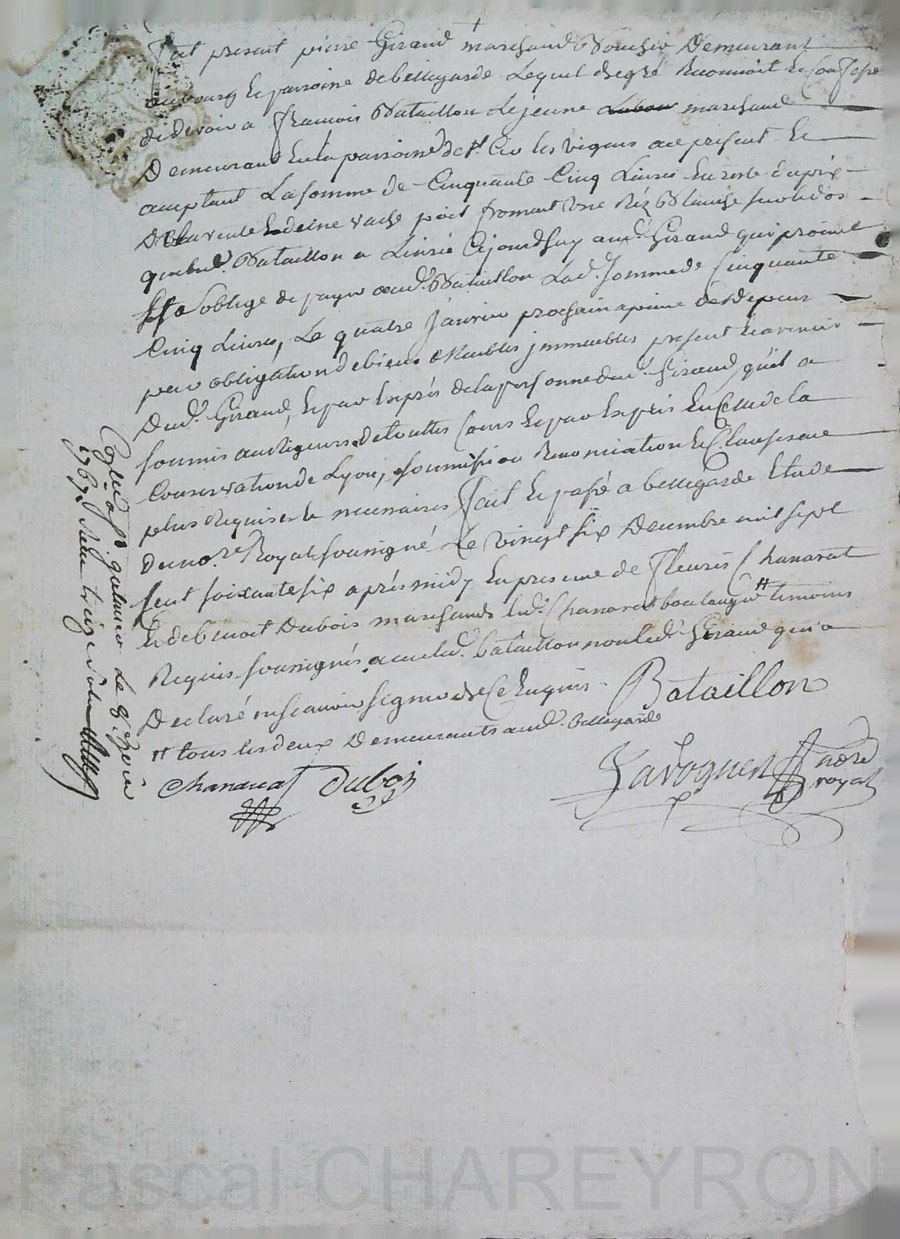 fut present pierre Giraud marchand Boucher Demeurant
au bourg et parroisse de bellegarde Lequel de gré Reconnoit et Confesse
de devoir a francois Bataillon le jeune marchand
Demeurant en la parroisse de st Cir les vignes acceptant et
acceptant La somme de Cinquante Cinq Livres en reste du prix
De la vente d'une vache poil froment Une Blanche sur le dos
que led. Bataillon a Livré Cejourdhuy aud. Giraud qui promet
et s'oblige de payer aud. Bataillon Lad. somme de Cinquante
Cinq Livres, Le quatre janvier prochain a peine de depens
par obligation de biens Meubles jmmeubles present et avenir
Dud. Giraud, et par Exprés de la personne dud. Giraud qu'il a
soumis aux rigueurs de touttes Cours et par Exprés En Celle de la
Conservation de Lyon, soumission Renonciation et Clauses aux
plus Requises et necessaires fait et passé a bellegarde Etude
Du no.re Royal soussigné Le vingt six Decembre mil sept
Cent soixante six aprés midy En presence de fleuris Chanavat
et de benoit Dubois marchands led. Chanavat boulanger tt temoins
Requis soussignés avec led. Bataillon non led. Giraud qui a
Declaré ne scavoir signer de Ce Enquis
tt tous les deux Demeurants aud. bellegarde
Bataillon
chanavat Dubois
Lavognen nore
royal
Con.lé a st galmier Le 8. Janvier
1767
Pascal CHAREYRON